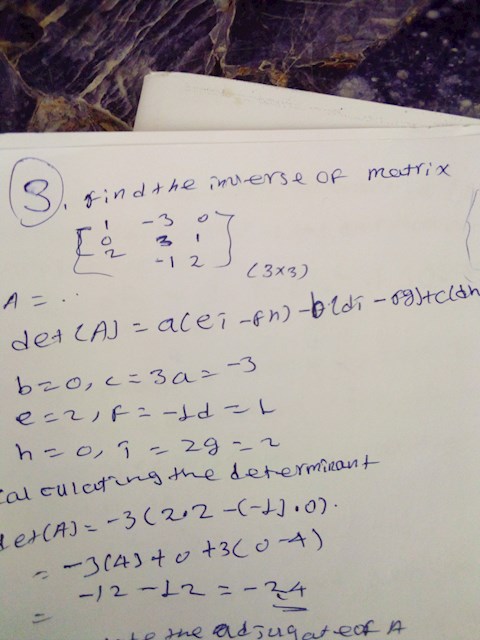 3. find the inverse of matrix
1 -3 0
0 3 1
2 -1 2
(3x3)
A = ..
det (A) = a(ei - fh) - b(di - fg) + c(dh
b=0, c=3 a=-3
e=2, f=-1 d=1
h=0, i=2 g=2
calculating the determinant
det(A) = -3(2.2 -(-1).0).
= -3(4) + 0 +3(0-4)
= -12 -12 = -24
the adjugate of A